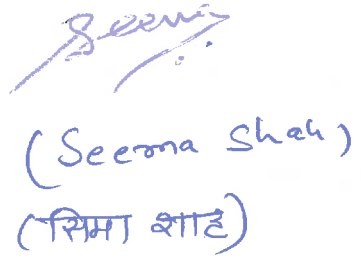 Seema
(Seema Shah)
(सिमा शाह)